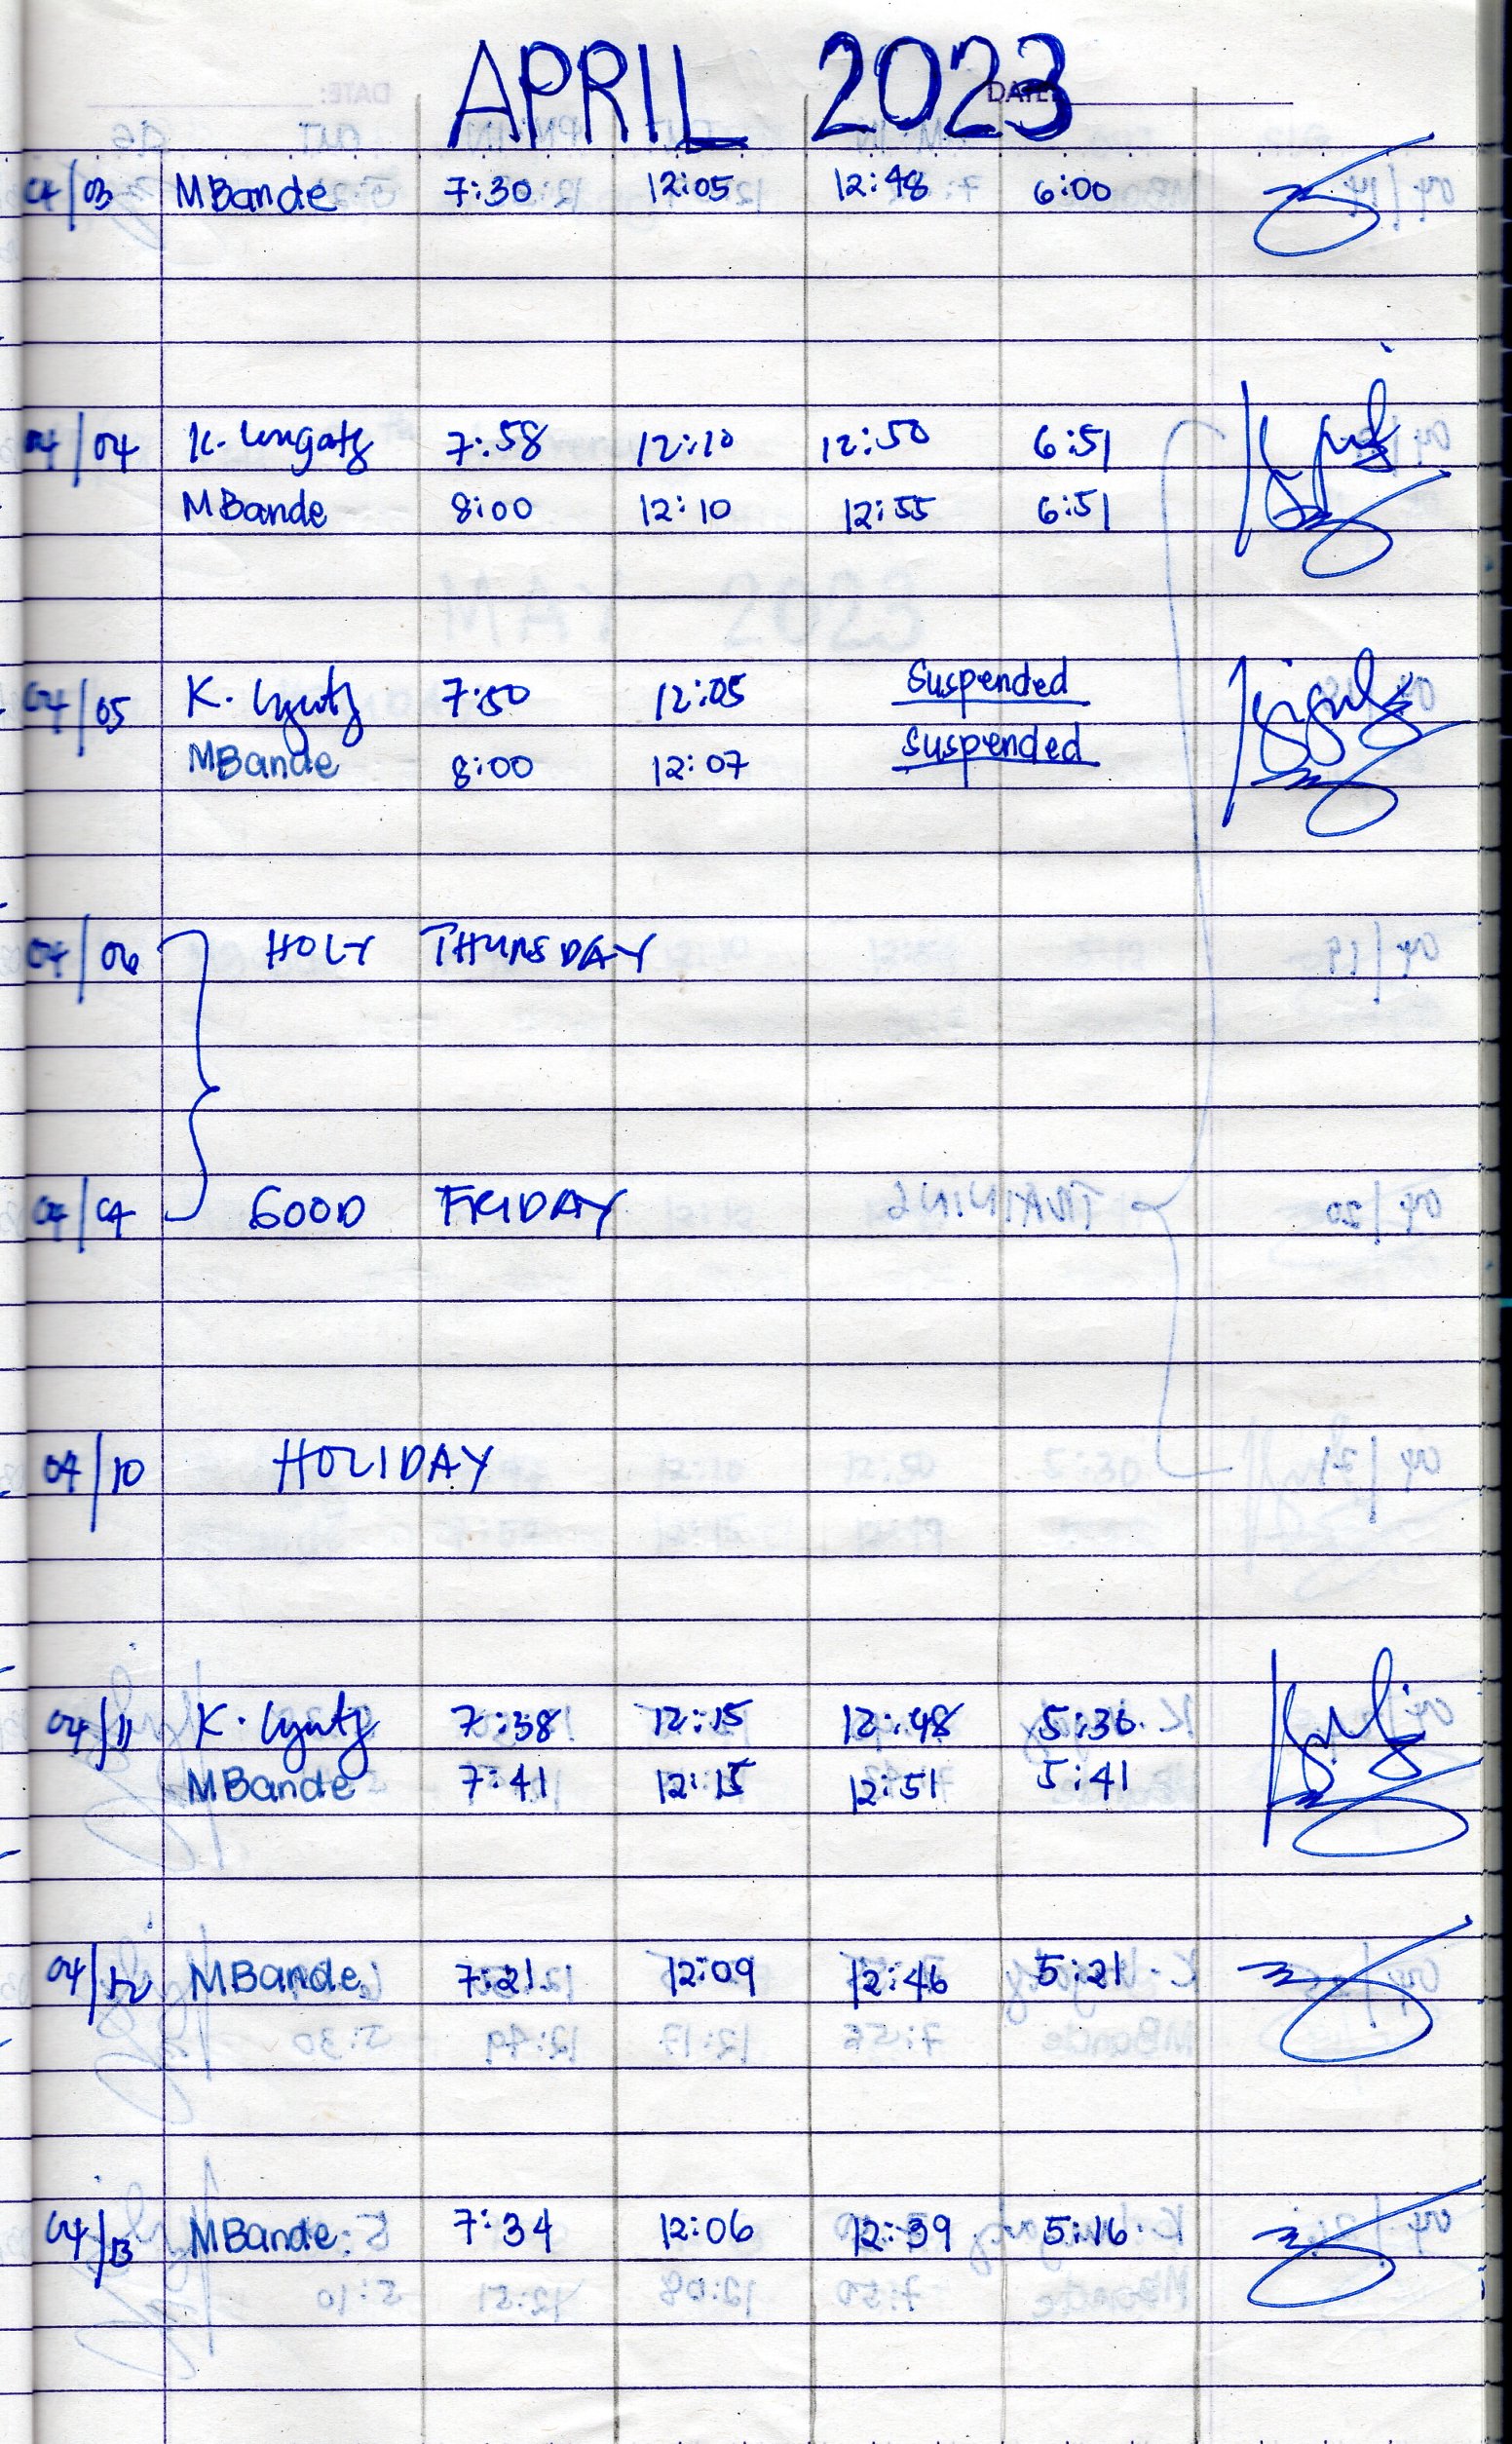 APRIL 2023
DATE:
04/03 MBande 7:30 12:05 12:48 6:00
04/04 K. 7:58 12:10 12:50 6:51
MBande 8:00 12:10 12:55 6:51
04/05 K. 7:50 12:05 Suspended
MBande 8:00 12:07 Suspended
04/06 HOLY THURSDAY
GOOD FRIDAY
04/10 HOLIDAY
04/11 K. 7:38 12:15 12:48 5:36
MBande 7:41 12:15 12:51 5:41
04/12 MBande 7:21 12:09 12:46 5:21
04/13 MBande 7:34 12:06 12:39 5:16